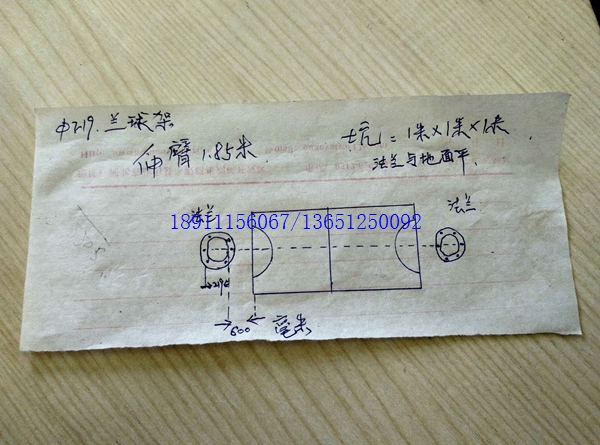 φ219.兰球架
伸臂1.85米
坑=1米×1米×1米.
法兰与地面平、
法兰
18911156067/13651250092
法兰
φ219
600 毫米